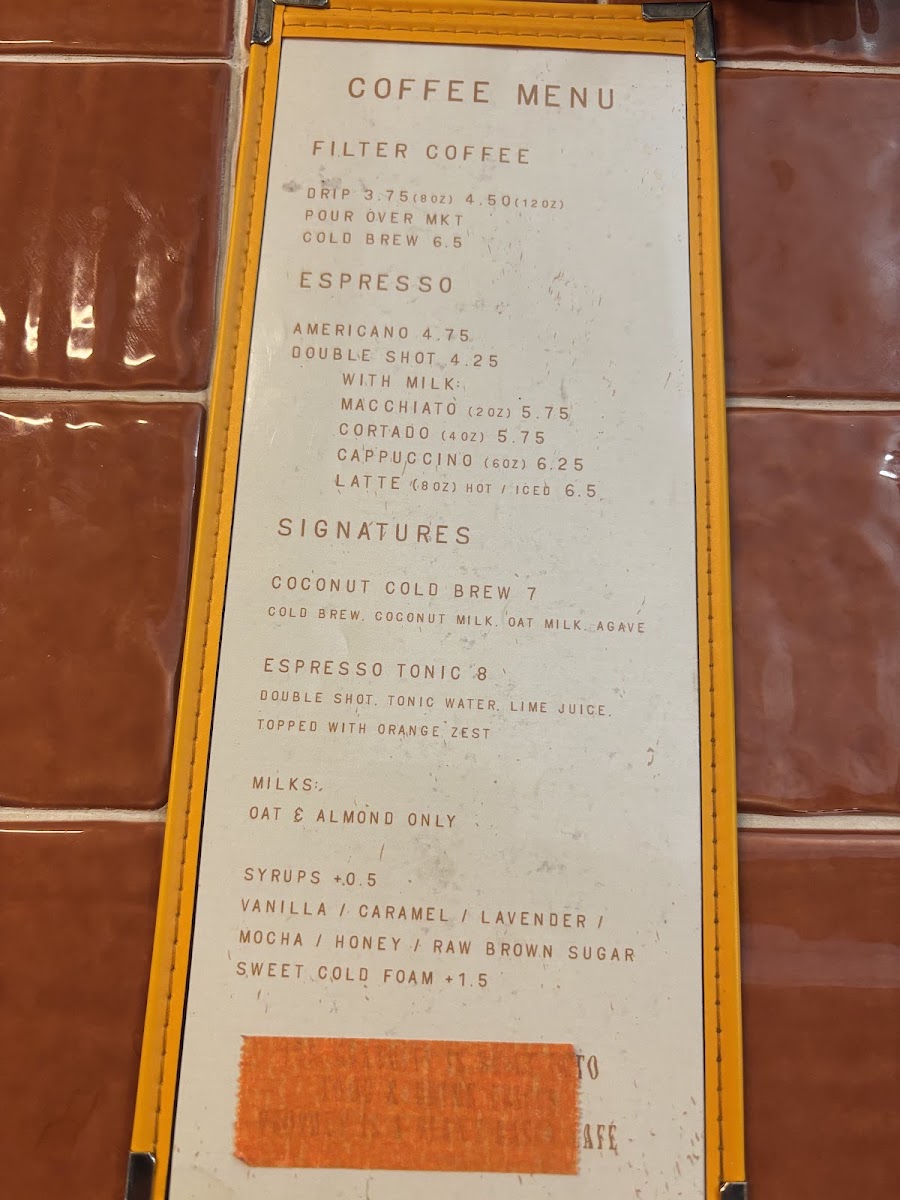 COFFEE MENU
FILTER COFFEE
DRIP 3.75(8OZ) 4.50(12OZ)
POUR OVER MKT
COLD BREW 6.5
ESPRESSO
AMERICANO 4.75
DOUBLE SHOT 4.25
WITH MILK:
MACCHIATO (2OZ) 5.75
CORTADO (4OZ) 5.75
CAPPUCCINO (6OZ) 6.25
LATTE (8OZ) HOT / ICED 6.5
SIGNATURES
COCONUT COLD BREW 7
COLD BREW, COCONUT MILK, OAT MILK, AGAVE
ESPRESSO TONIC 8
DOUBLE SHOT, TONIC WATER, LIME JUICE,
TOPPED WITH ORANGE ZEST
MILKS:
OAT & ALMOND ONLY
SYRUPS +0.5
VANILLA / CARAMEL / LAVENDER /
MOCHA / HONEY / RAW BROWN SUGAR
SWEET COLD FOAM +1.5
TO